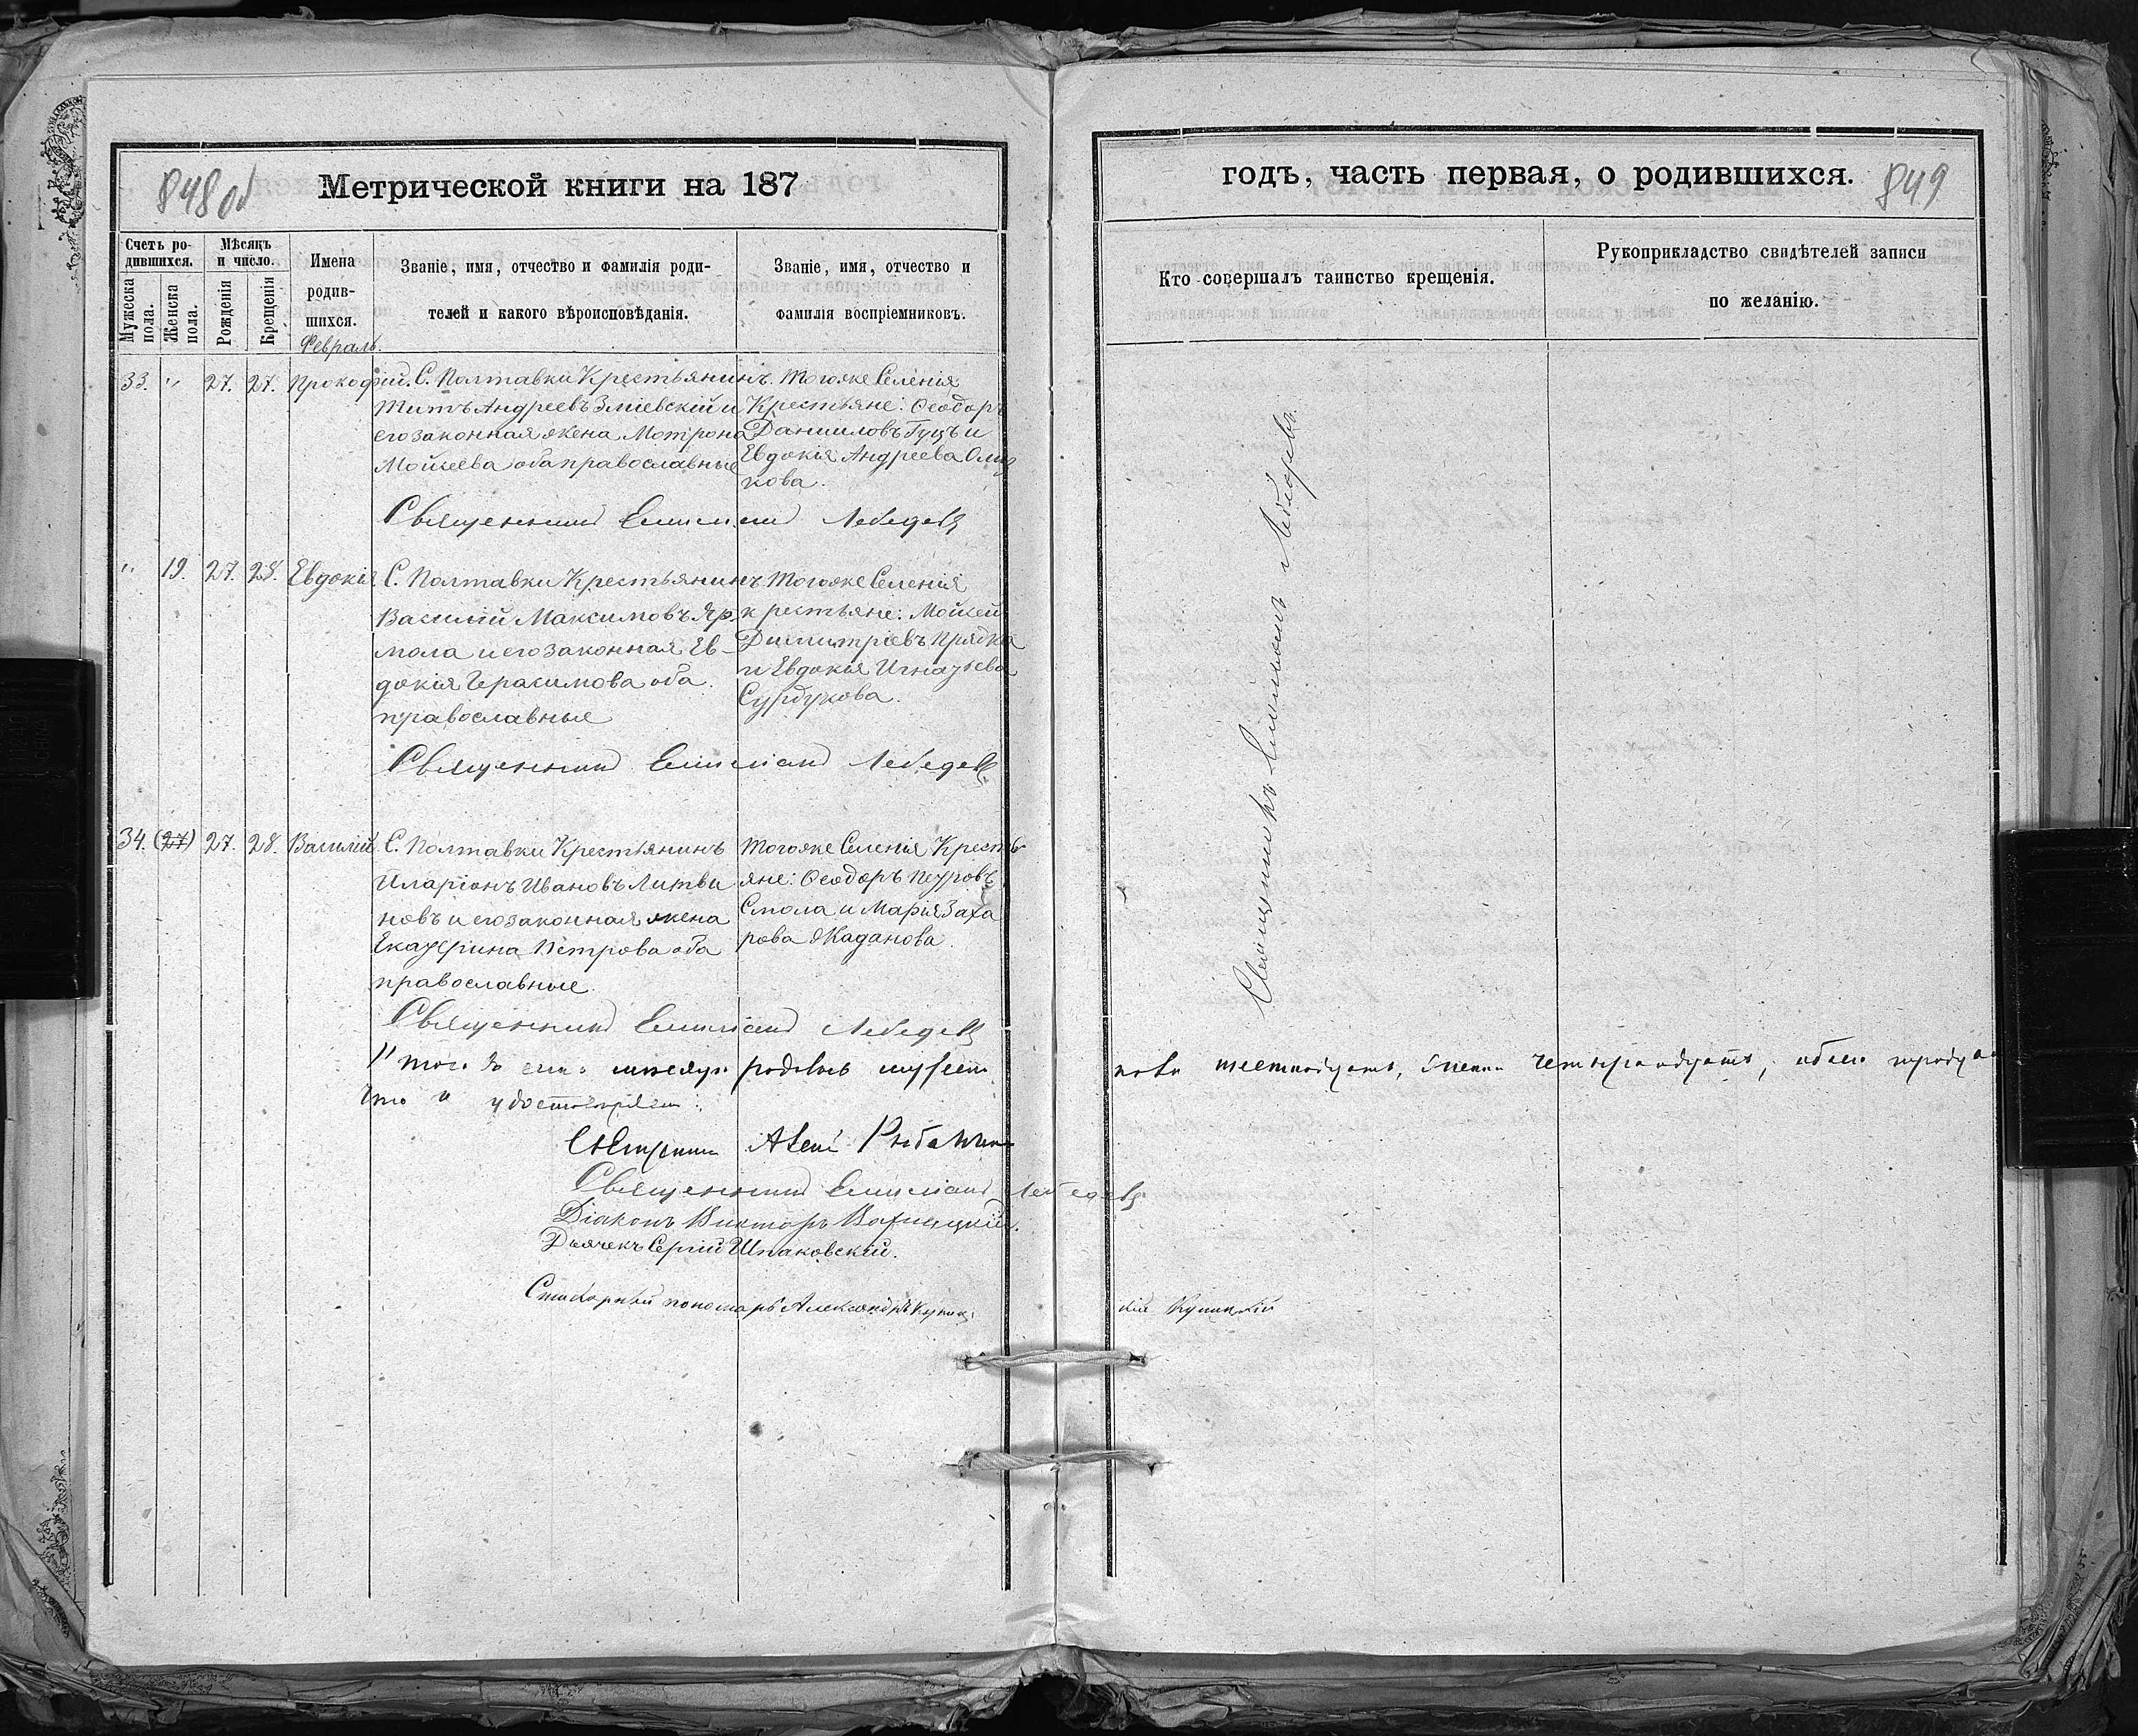 848 об
Метрической книги на 187
Счетъ ро-
дившихся.
Мѣсяцъ
и число.
Мужеска
пола.
Женска
пола.
Рожденія
Крещенія
Имена
родив-
шихся.
Февраль.
Званіе, имя, отчество и фамилія роди-
телей и какого вѣроисповѣданія.
Званіе, имя, отчество и
фамилія воспріемниковъ.
33. " 27. 27. Прокофій. С. Полтавки Крестьянинъ
Титъ Андреевъ Зміевскій и
его законная жена Мотрона
Мойсеева оба православные
Тогоже Селенія
Крестьяне: Ѳеодоръ
Данииловъ Гуцъ и
Евдокія Андреева
кова.
Священникъ Емиліанъ Лебедевъ
" 19. 27. 28. Евдокія С. Полтавки Крестьянинъ
Василій Максимовъ Яр-
мола и его законная Ев-
докія Герасимова оба
православные
Тогоже Селенія
крестьяне: Мойсей
Димитріевъ Прядка
и Евдокія Игнатьева
Сурдукова.
Священникъ Емиліанъ Лебедевъ
34. (27) 27. 28. Василій С. Полтавки Крестьянинъ
Иларіонъ Ивановъ Литви
новъ и его законная жена
Екатерина Петрова оба
православные.
Тогоже Селенія Кресть
яне: Ѳеодоръ Петровъ
Смола и Марія Заха
рова Жаданова.
Священникъ Емиліанъ Лебедевъ
родилось
что и удостовѣряемъ:
Священникъ
Священникъ Емиліанъ Лебедевъ
Діаконъ Викторъ
Дьячекъ Сергій Шпаковскій.
Стихарный пономарь Александръ
годъ, часть первая, о родившихся.
849
Кто совершалъ таинство крещенія.
Рукоприкладство свидѣтелей записи
по желанію.
Священникъ Емиліанъ Лебедевъ